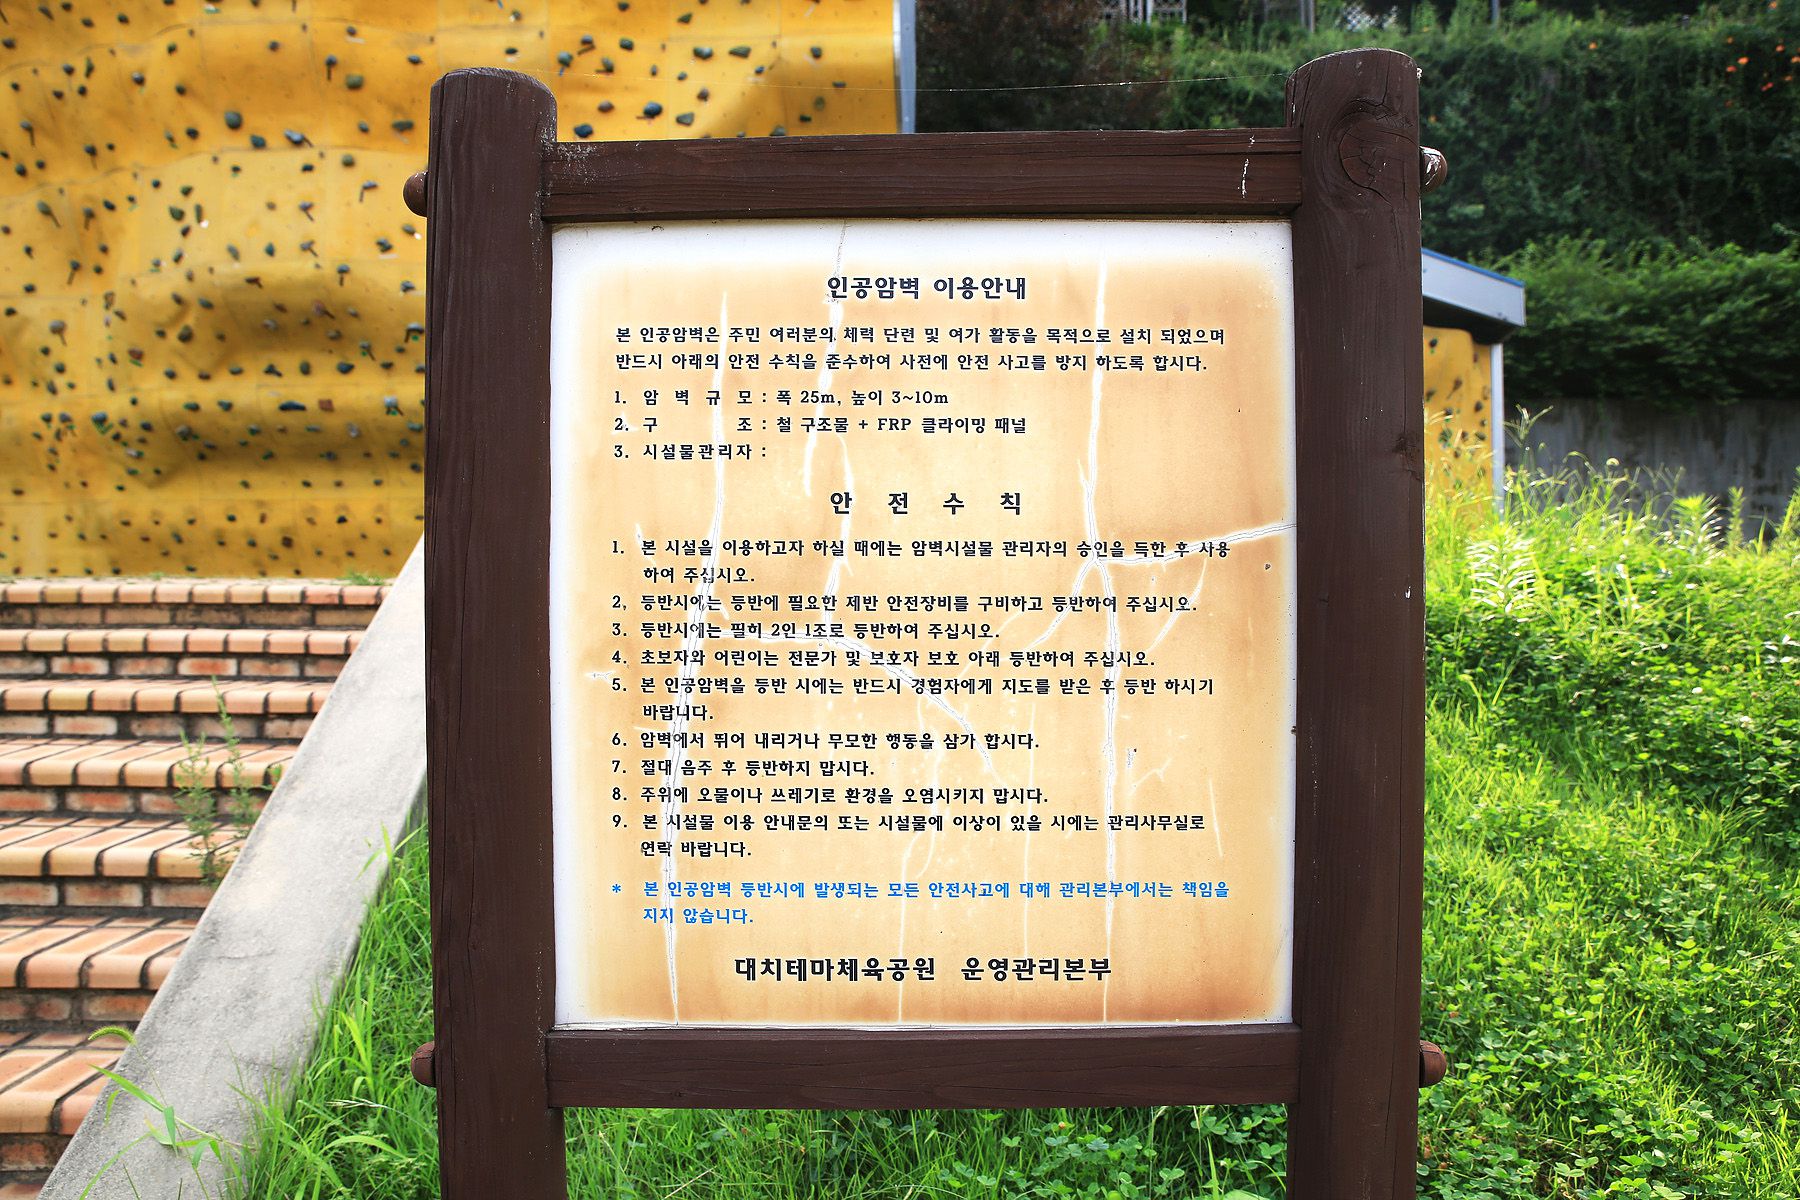 인공암벽 이용안내
본 인공암벽은 주민 여러분의 체력 단련 및 여가 활동을 목적으로 설치 되었으며
반드시 아래의 안전 수칙을 준수하여 사전에 안전 사고를 방지 하도록 합시다.
1. 암 벽 규 모 : 폭 25m, 높이 3~10m
2. 구 조 : 철 구조물 + FRP 클라이밍 패널
3. 시설물관리자 :
안 전 수 칙
1. 본 시설을 이용하고자 하실 때에는 암벽시설물 관리자의 승인을 득한 후 사용
하여 주십시오.
2, 등반시에는 등반에 필요한 제반 안전장비를 구비하고 등반하여 주십시오.
3. 등반시에는 필히 2인 1조로 등반하여 주십시오.
4. 초보자와 어린이는 전문가 및 보호자 보호 아래 등반하여 주십시오.
5. 본 인공암벽을 등반 시에는 반드시 경험자에게 지도를 받은 후 등반 하시기
바랍니다.
6. 암벽에서 뛰어 내리거나 무모한 행동을 삼가 합시다.
7. 절대 음주 후 등반하지 맙시다.
8. 주위에 오물이나 쓰레기로 환경을 오염시키지 맙시다.
9. 본 시설물 이용 안내문의 또는 시설물에 이상이 있을 시에는 관리사무실로
연락 바랍니다.
* 본 인공암벽 등반시에 발생되는 모든 안전사고에 대해 관리본부에서는 책임을
지지 않습니다.
대치테마체육공원 운영관리본부